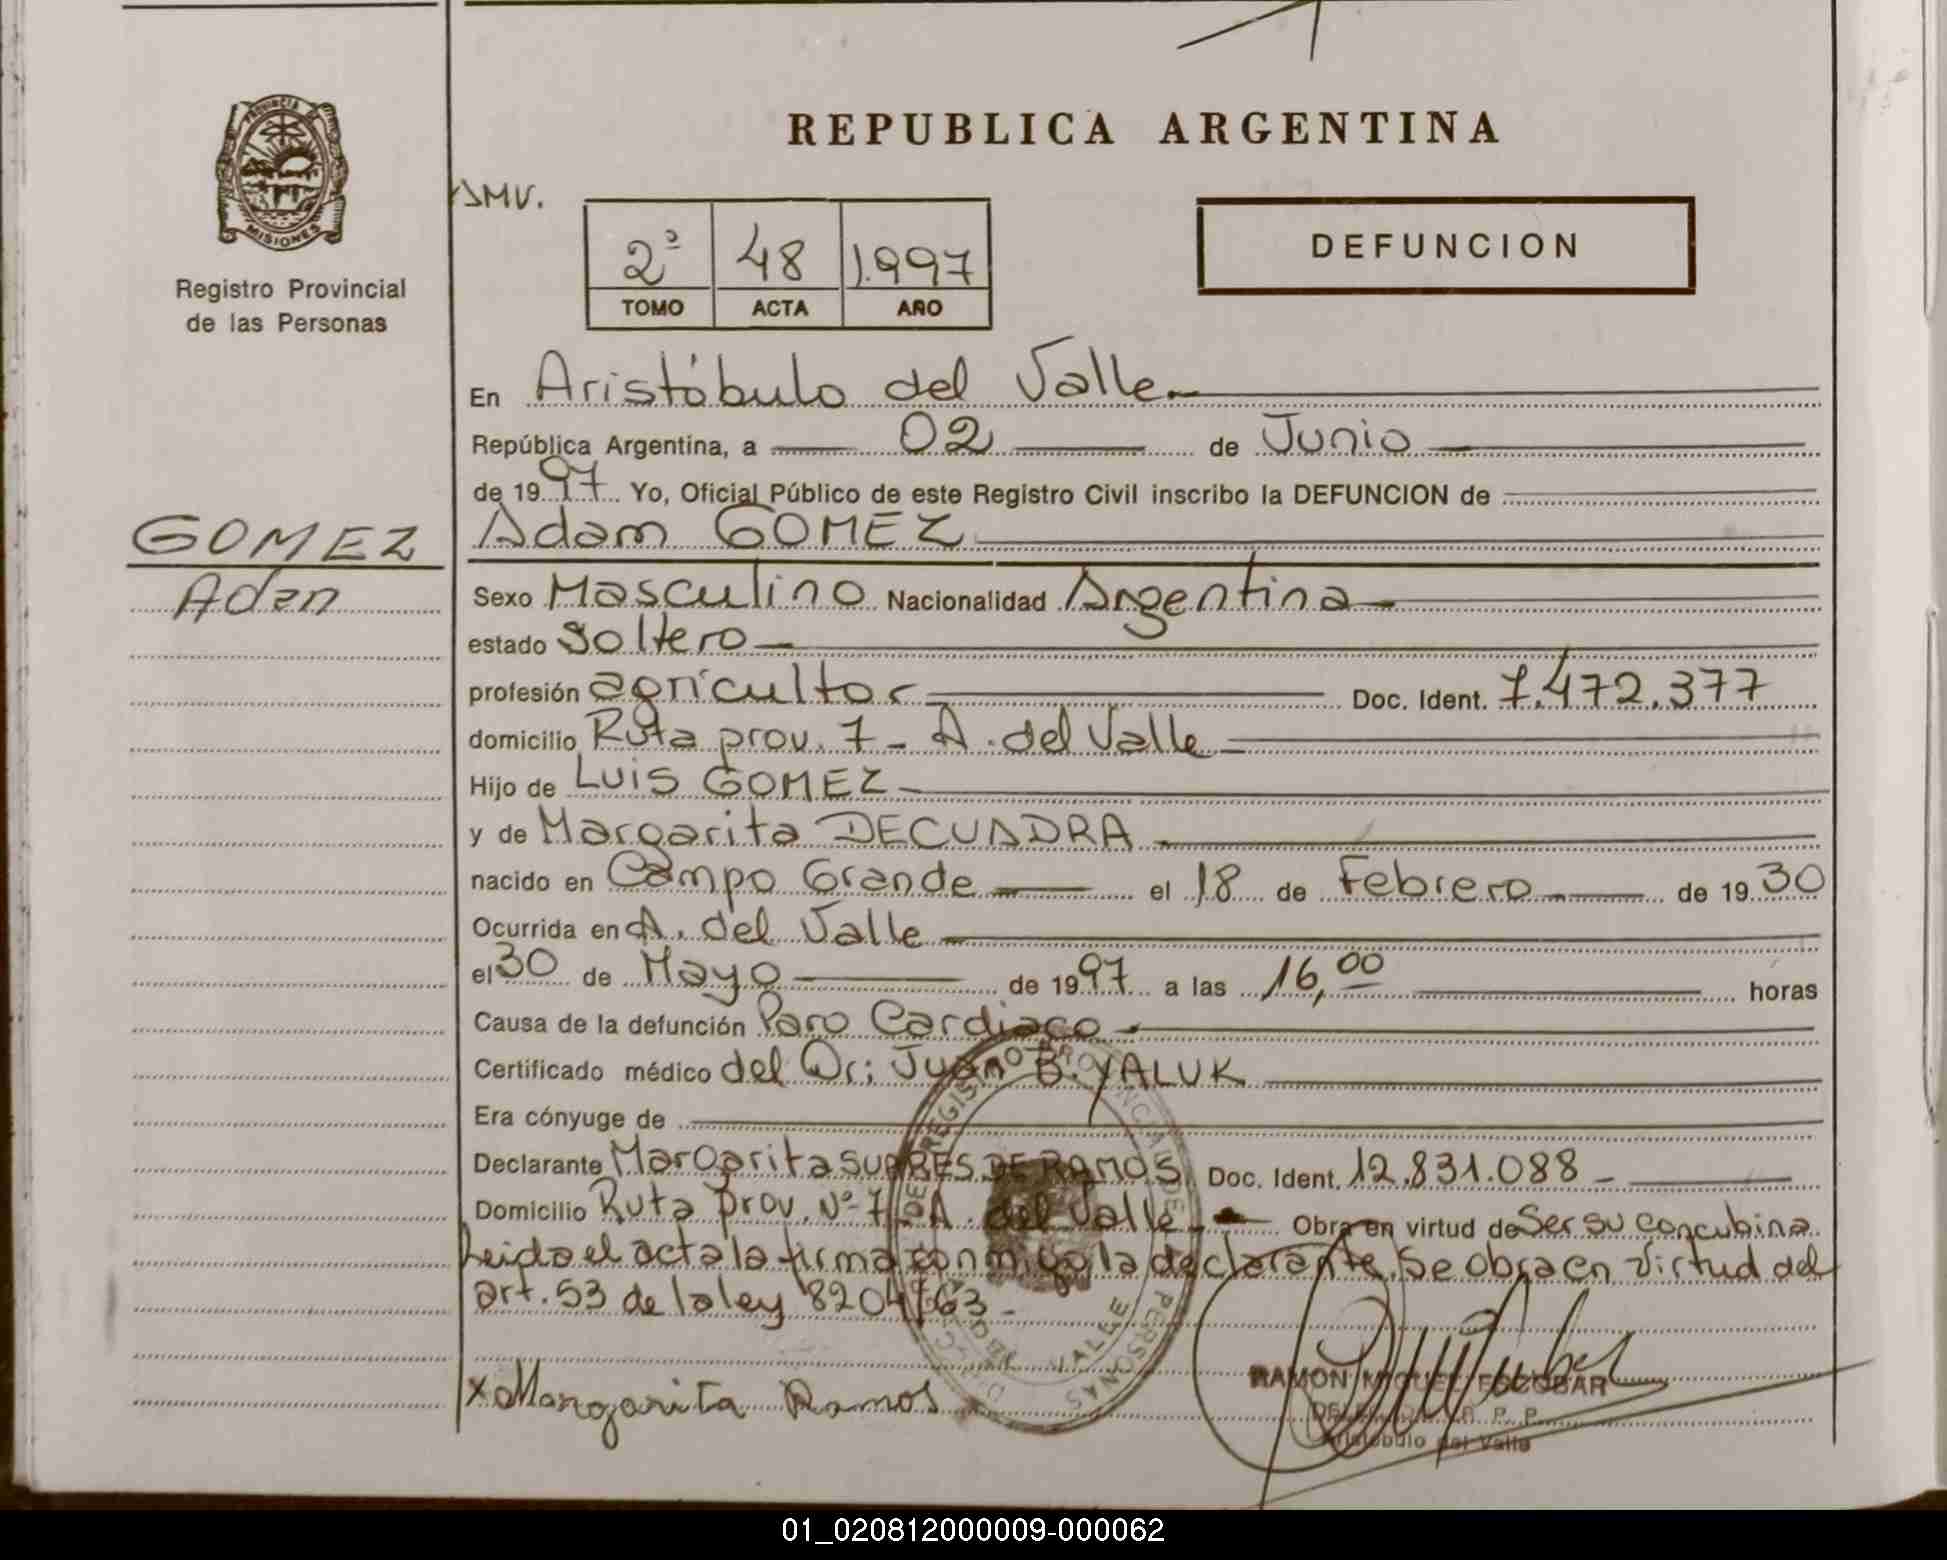 REPUBLICA ARGENTINA
PROVINCIA DE
MISIONES
Registro Provincial
de las Personas
DMV.
2º 48 1.997
TOMO ACTA AÑO
DEFUNCION
En Aristóbulo del Valle
República Argentina, a 02 de Junio
de 1997 Yo, Oficial Público de este Registro Civil inscribo la DEFUNCION de
GOMEZ
Adan
Adam GOMEZ
Sexo Masculino Nacionalidad Argentina
estado Soltero
profesión agricultor Doc. Ident. 7.472.377
domicilio Ruta prov. 7 - A. del Valle
Hijo de Luis GOMEZ
y de Margarita DECUADRA
nacido en Campo Grande el 18 de Febrero de 1930
Ocurrida en A. del Valle
el 30 de Mayo de 1997 a las 16,00 horas
Causa de la defunción Paro Cardiaco
Certificado médico del Dr: Juan B. YALUK
Era cónyuge de
Declarante Margarita SUARES DE RAMOS Doc. Ident. 12.831.088
Domicilio Ruta Prov. Nº 7 A. del Valle Obra en virtud de Ser su concubina.
Leida el acta la firma con migo la declarante. Se obra en virtud del
art. 53 de la ley 8204/63
x Margarita Ramos
RAMON MIGUEL ESCOBAR
R. P. P.
Aristobulo del Valle
01_020812000009-000062